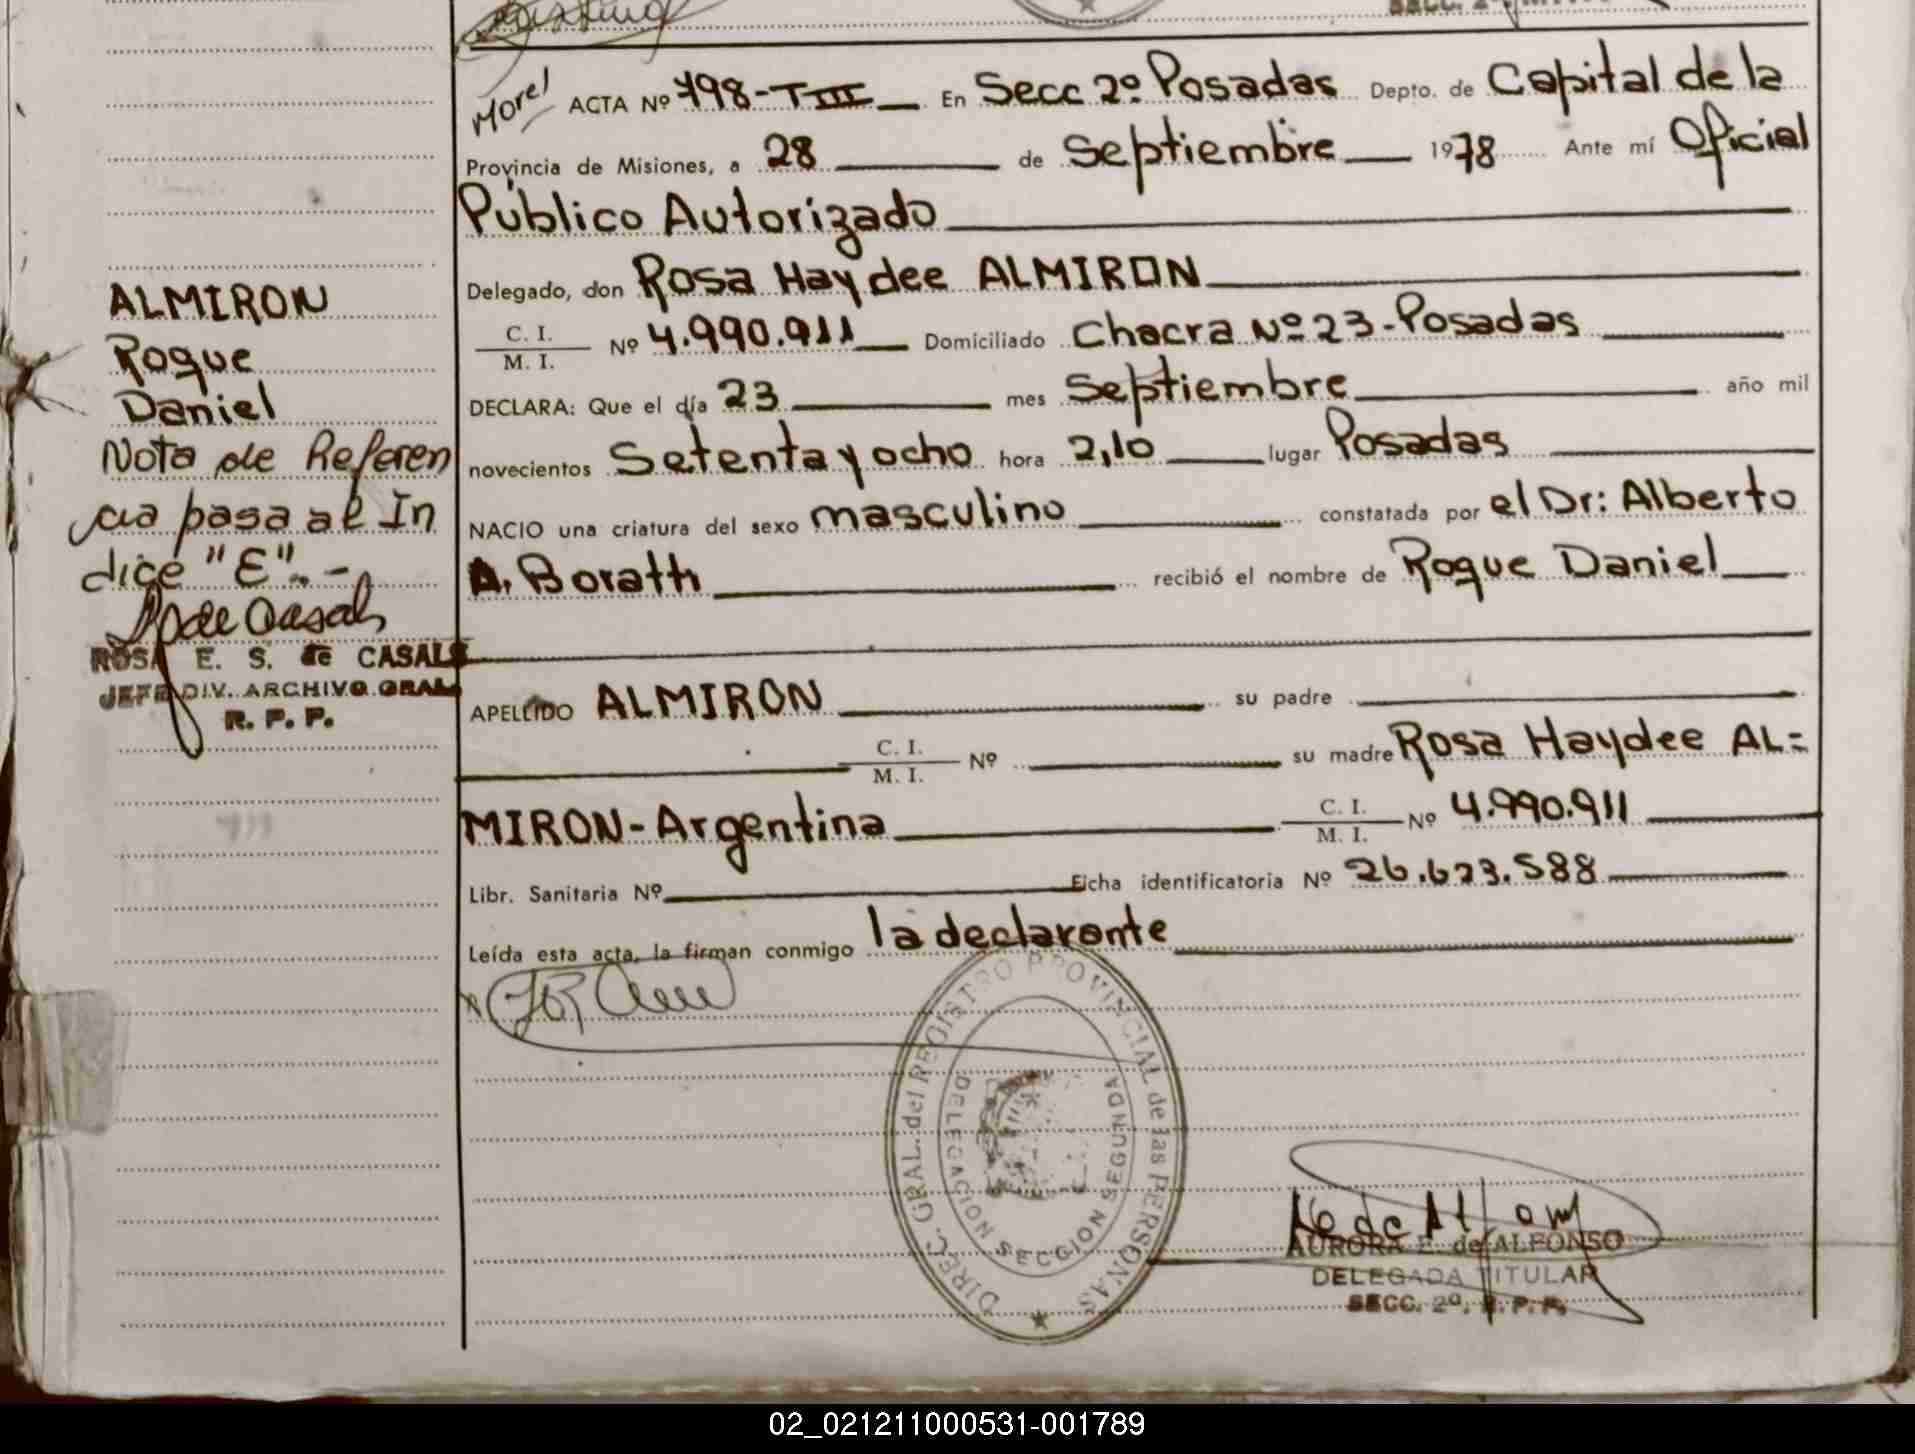 SECC. 2º
Morel
ACTA Nº 798-TIII En Secc 2º Posadas Depto. de Capital de la
Provincia de Misiones, a 28 de Septiembre 1978 Ante mí Oficial
Público Autorizado
Delegado, don Rosa Haydee ALMIRON
C. I.
M. I.
Nº 4.990.911 Domiciliado Chacra Nº 23-Posadas
DECLARA: Que el día 23 mes Septiembre año mil
novecientos Setenta y ocho hora 2,10 lugar Posadas
NACIO una criatura del sexo masculino constatada por el Dr: Alberto
A. Boratti recibió el nombre de Roque Daniel
APELLIDO ALMIRON su padre
C. I.
M. I.
Nº su madre Rosa Haydee AL=
MIRON-Argentina
C. I.
M. I.
Nº 4.990.911
Libr. Sanitaria Nº Ficha identificatoria Nº 26.623.588
Leída esta acta, la firman conmigo la declarante
ALMIRON
Roque
Daniel
Nota de Referen
cia pasa al In
dice "E".-
de Casals
ROSA E. S. de CASALS
JEFE DIV. ARCHIVO GRAL.
R. P. P.
DIREC. GRAL. del REGISTRO PROVINCIAL de las PERSONAS
DELEGACION SECCION SEGUNDA
AURORA E. de ALFONSO
DELEGADA TITULAR
SECC. 2º. R. P. P.
02_021211000531-001789